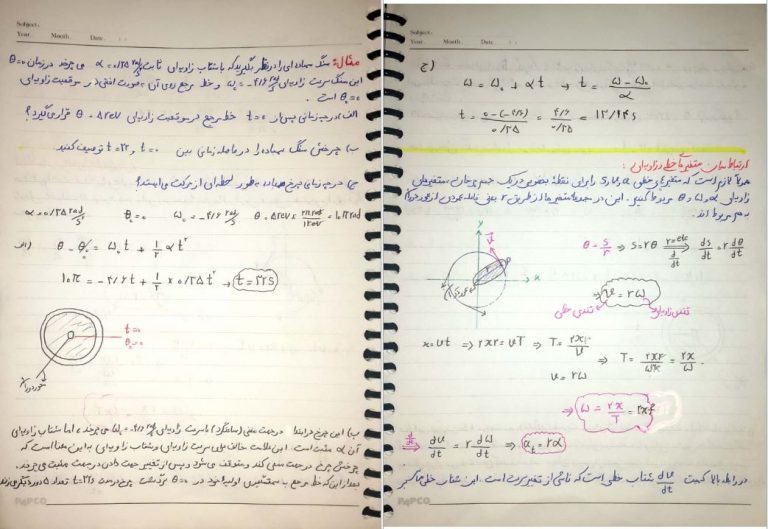 Subject.
Year. Month. Date.
مثال: سنگ سمباده ای را در نظر بگیرید که با شتاب زاویه‌ای ثابت α = ۰/۳۵ rad/s² می چرخد در زمان t=۰
این سنگ سرعت زاویه‌ای ω₀ = -۴/۶ rad/s و خط مرجع روی آن بصورت افقی در موقعیت زاویه‌ای
θ₀=۰ است.
الف) در چه زمانی پس از t=۰ خط مرجع در موقعیت زاویه‌ای θ=۵rev قرار می گیرد؟
ب) چرخش سنگ سمباده را در فاصله زمانی بین t=۰ و t=۳۲ توصیف کنید.
ج) در چه زمانی چرخ سمباده بطور لحظه‌ای از حرکت می ایستد؟
α=۰/۳۵ rad/s² θ₀=۰ ω₀=-۴/۶ rad/s θ=۵rev × ۲π rad/۱rev = ۱۰π rad
الف) θ - θ₀ = ω₀t + ½ αt²
۱۰π = -۴/۶t + ½ × ۰/۳۵t² → t=۳۲s
t=۰
θ₀=۰
محور دوران
ب) این چرخ در ابتدا در جهت منفی (ساعتگرد) با سرعت زاویه‌ای ω₀=-۴/۶ rad/s می چرخد، اما شتاب زاویه‌ای
آن α مثبت است. این علامت مخالف برای سرعت زاویه‌ای و شتاب زاویه‌ای به این معنا است که
چرخش چرخ در جهت منفی کند و متوقف می شود و پس از تغییر جهت دادن در جهت مثبت می چرخد.
بعد از این که خط مرجع به سمتگیری اولیه خود در θ=۰ برگشت چرخ در مدت t=۳۲s تعداد ۵ دور دیگر می زند
PAPCO
Subject.
Year. Month. Date.
ج)
ω = ω₀ + αt → t = (ω - ω₀)/α
t = (۰-(-۴/۶))/۰/۳۵ = ۴/۶/۰/۳۵ = ۱۳/۱۴ s
ارتباط میان متغیرهای خطی و زاویه‌ای:
لازم است که متغیرهای خطی s و v و a را برای نقطهٔ بخصوصی در یک جسم چرخان به متغیرهای
زاویه‌ای θ و ω و α مربوط کنیم. این دو مجموعه متغیرها از طریق r یعنی فاصله عمودی از محور دوران
به هم مربوط اند.
y
x
v
r
P
محور دوران
θ = s/r ⇒ s=rθ r=cte ⇒ d/dt ds/dt = r dθ/dt
⇒ v = rω
تندی خطی
تندی زاویه‌ای
x=vt ⇒ ۲πr=vT ⇒ T=۲πr/v
v=rω
⇒ T = ۲πr/ωr = ۲π/ω
⇒ ω = ۲π/T = ۲πf
d/dt ⇒ dv/dt = r dω/dt ⇒ aₜ=rα
در رابطه بالا کمیت dv/dt شتاب خطی است که ناشی از تغییر سرعت است. این شتاب خطی مماس بر
PAPCO